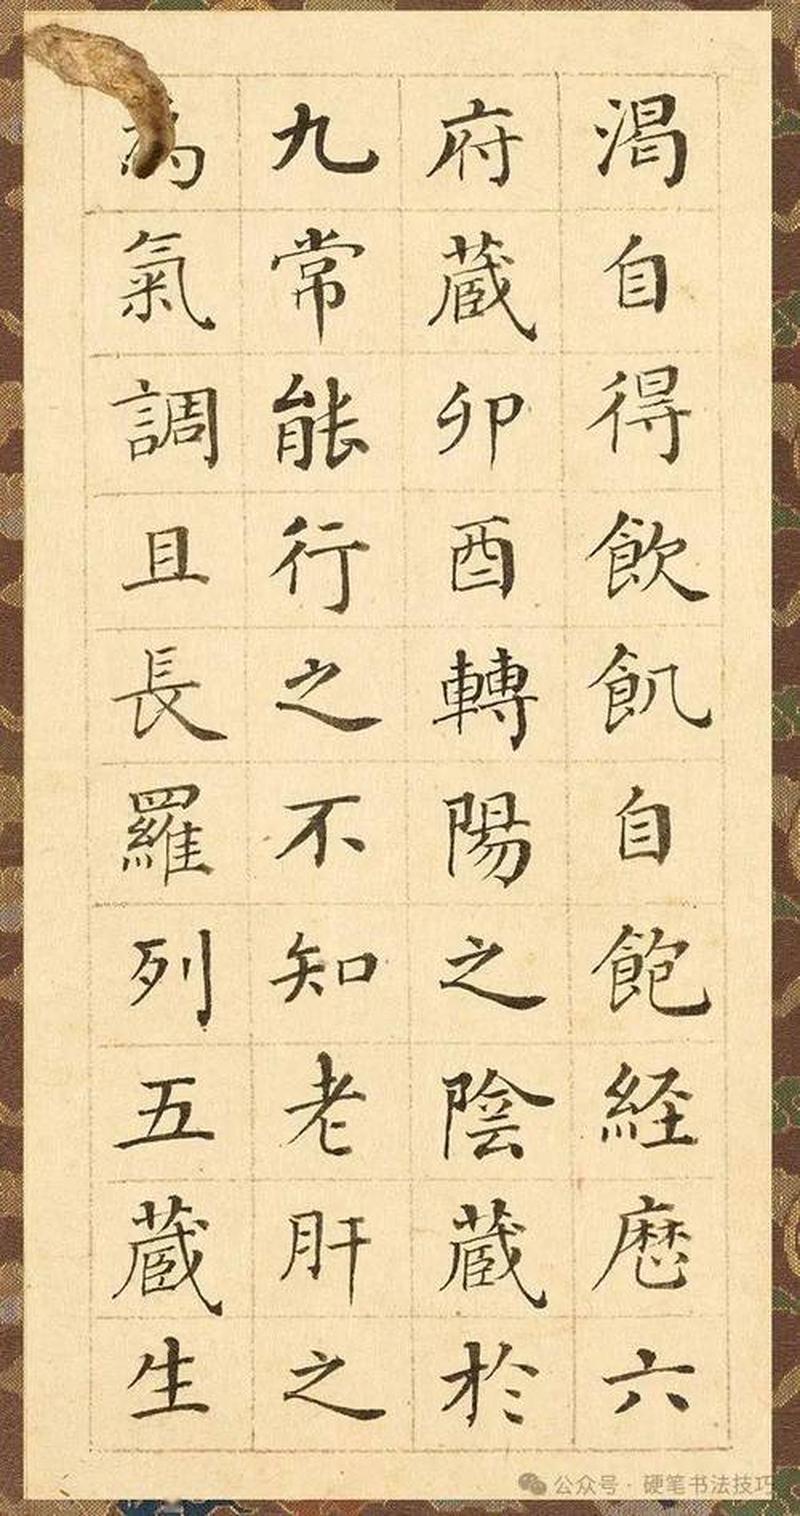 渇自得飲飢自飽経歴六
府蔵卯酉轉陽之陰蔵於
九常能行之不知老肝之
為氣調且長羅列五蔵生
公众号·硬笔书法技巧